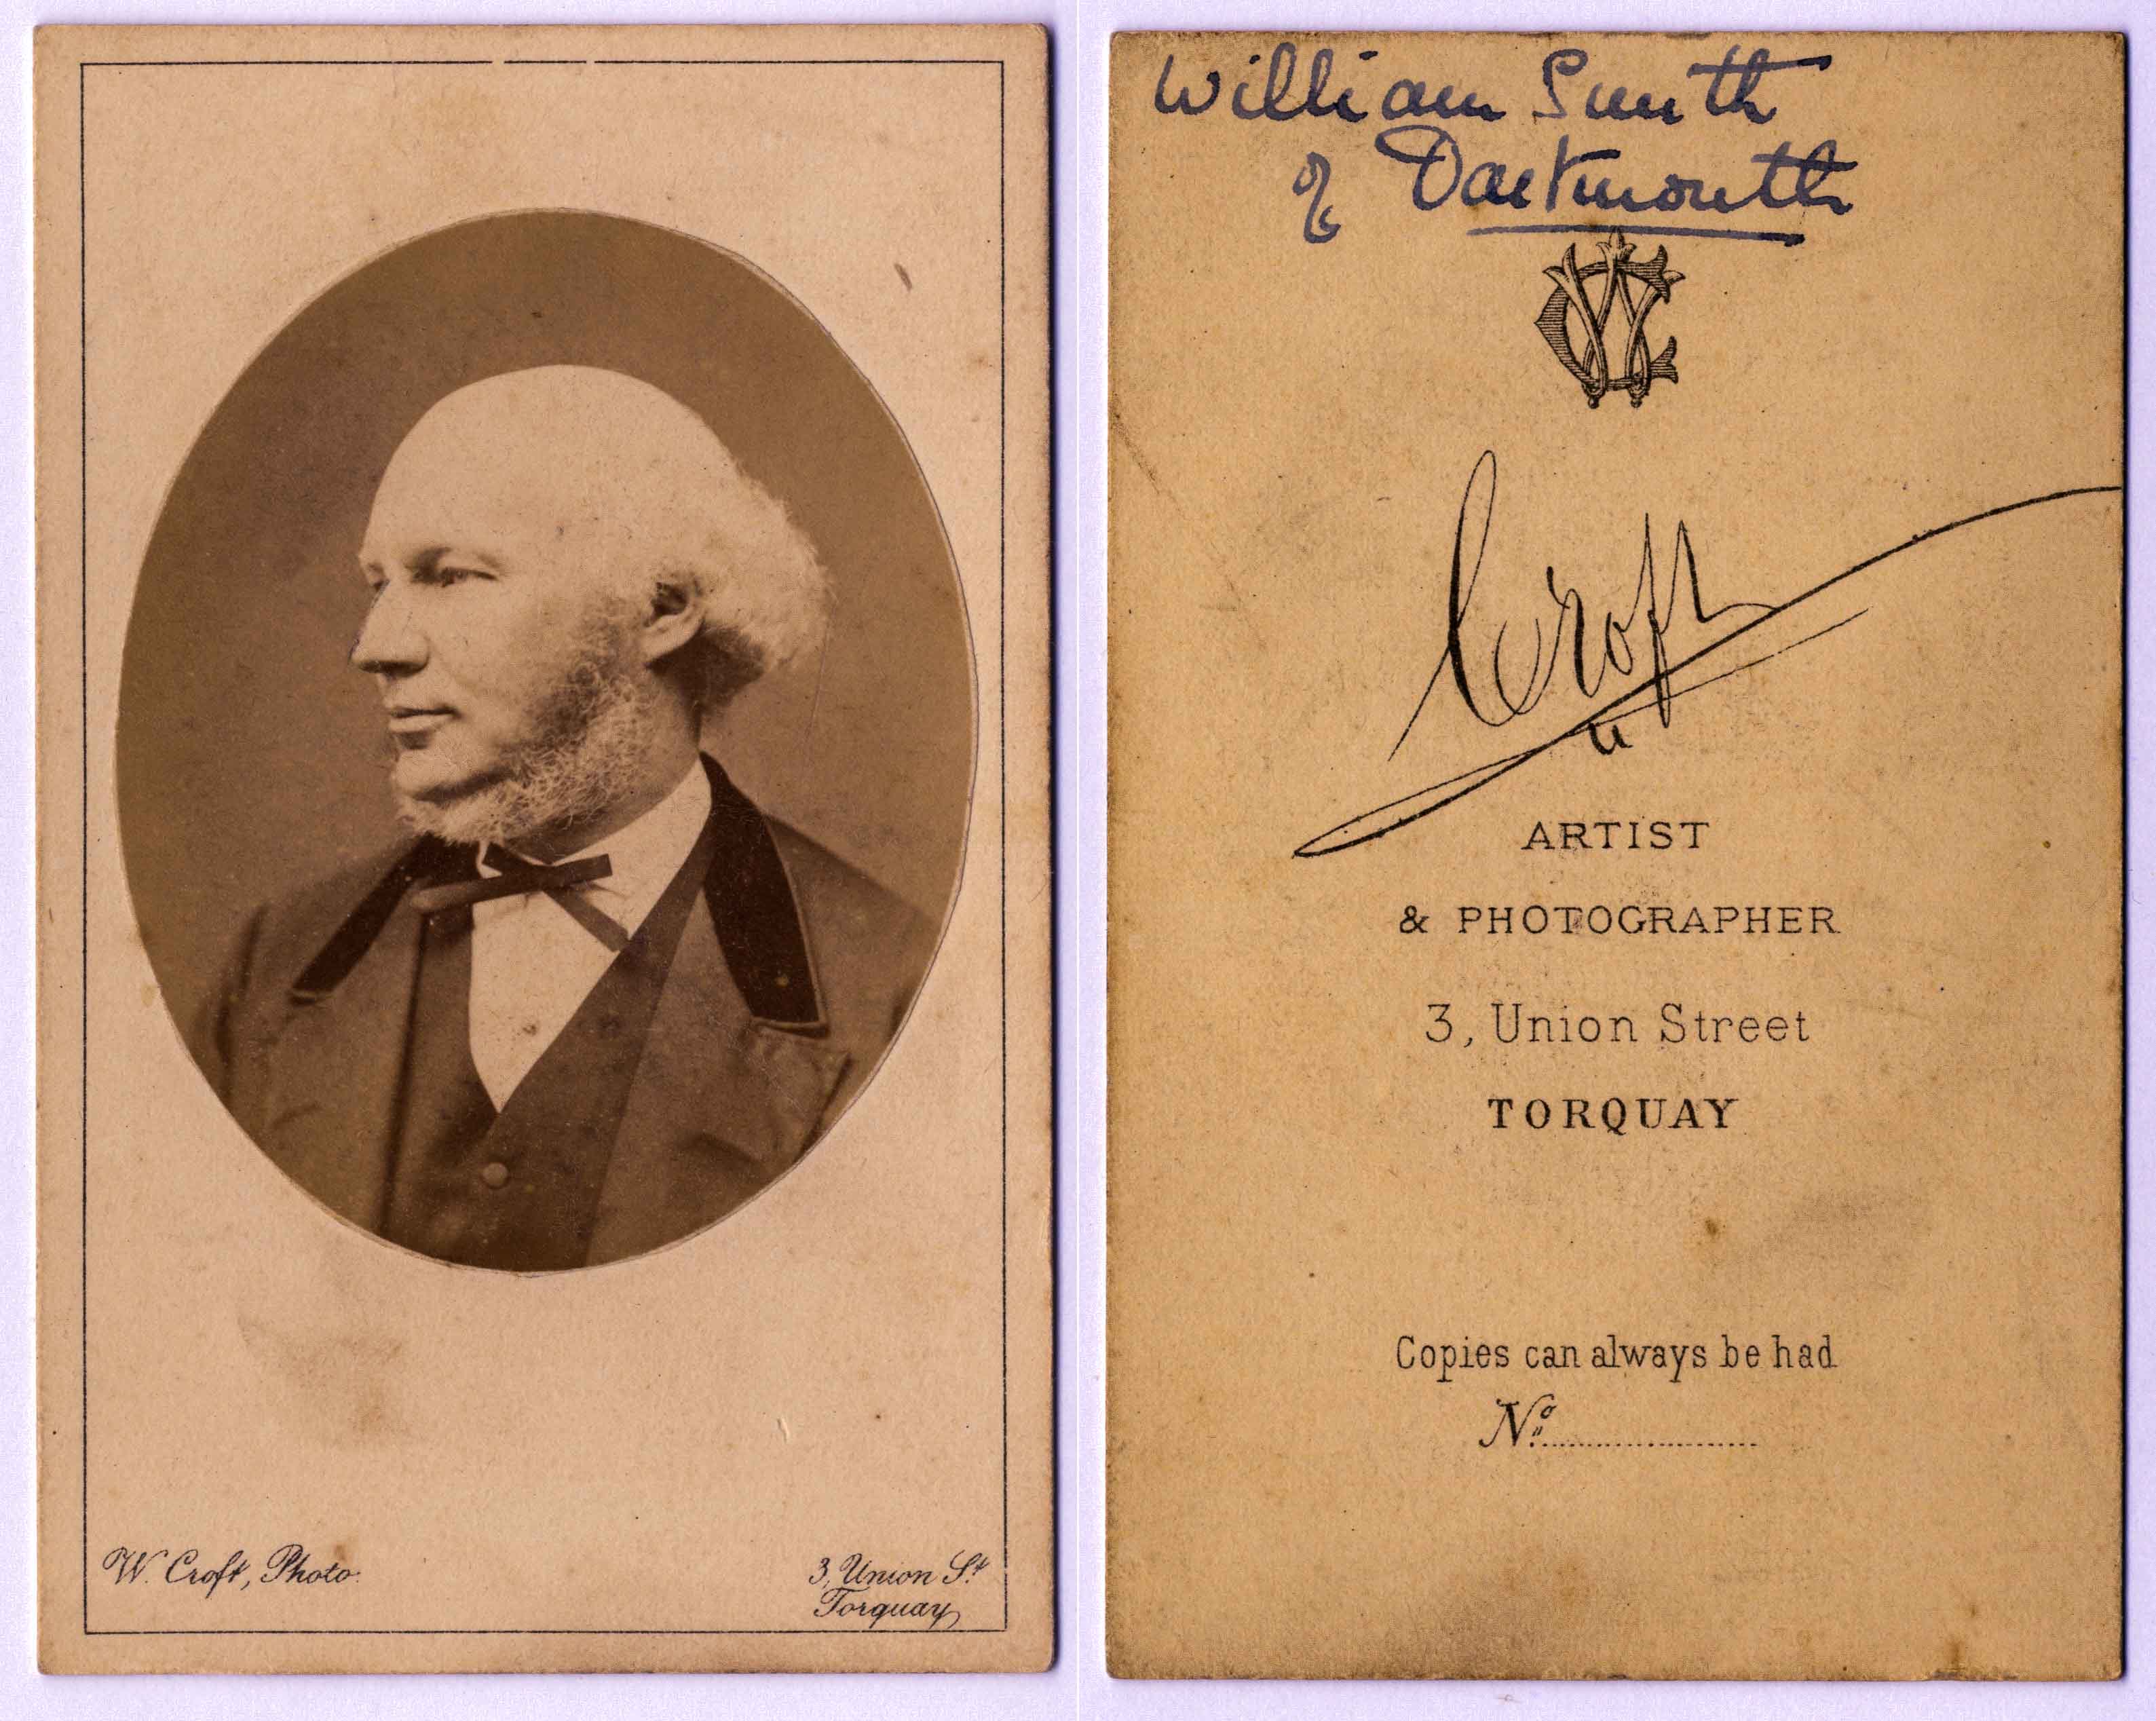 W. Croft, Photo.
3, Union St.
Torquay
William Smith
of Dartmouth
Croft
ARTIST
& PHOTOGRAPHER
3, Union Street
TORQUAY
Copies can always be had
No.